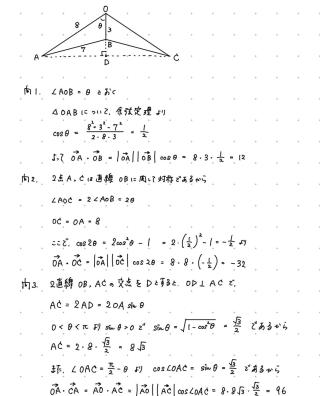 O
8 θ 3
B
7
A D C
問1. ∠AOB = θ とおく
△OABについて、余弦定理より
cosθ = (8²+3²-7²)/(2・8・3) = 1/2
よって OA・OB = |OA||OB| cosθ = 8・3・1/2 = 12
問2. 2点A, Cは直線OBに関して対称であるから
∠AOC = 2∠AOB = 2θ
OC = OA = 8
ここで、cos2θ = 2cos²θ - 1 = 2・(1/2)² - 1 = -1/2 より
OA・OC = |OA||OC| cos2θ = 8・8・(-1/2) = -32
問3. 2直線OB, ACの交点をDとすると、OD⊥ACで、
AC = 2AD = 2OA sinθ
0 < θ < π より sinθ > 0で sinθ = √(1-cos²θ) = √3/2 であるから
AC = 2・8・√3/2 = 8√3
また、∠OAC = π/2 - θ より cos∠OAC = sinθ = √3/2 であるから
OA・CA = AO・AC = |AO||AC| cos∠OAC = 8・8√3・√3/2 = 96